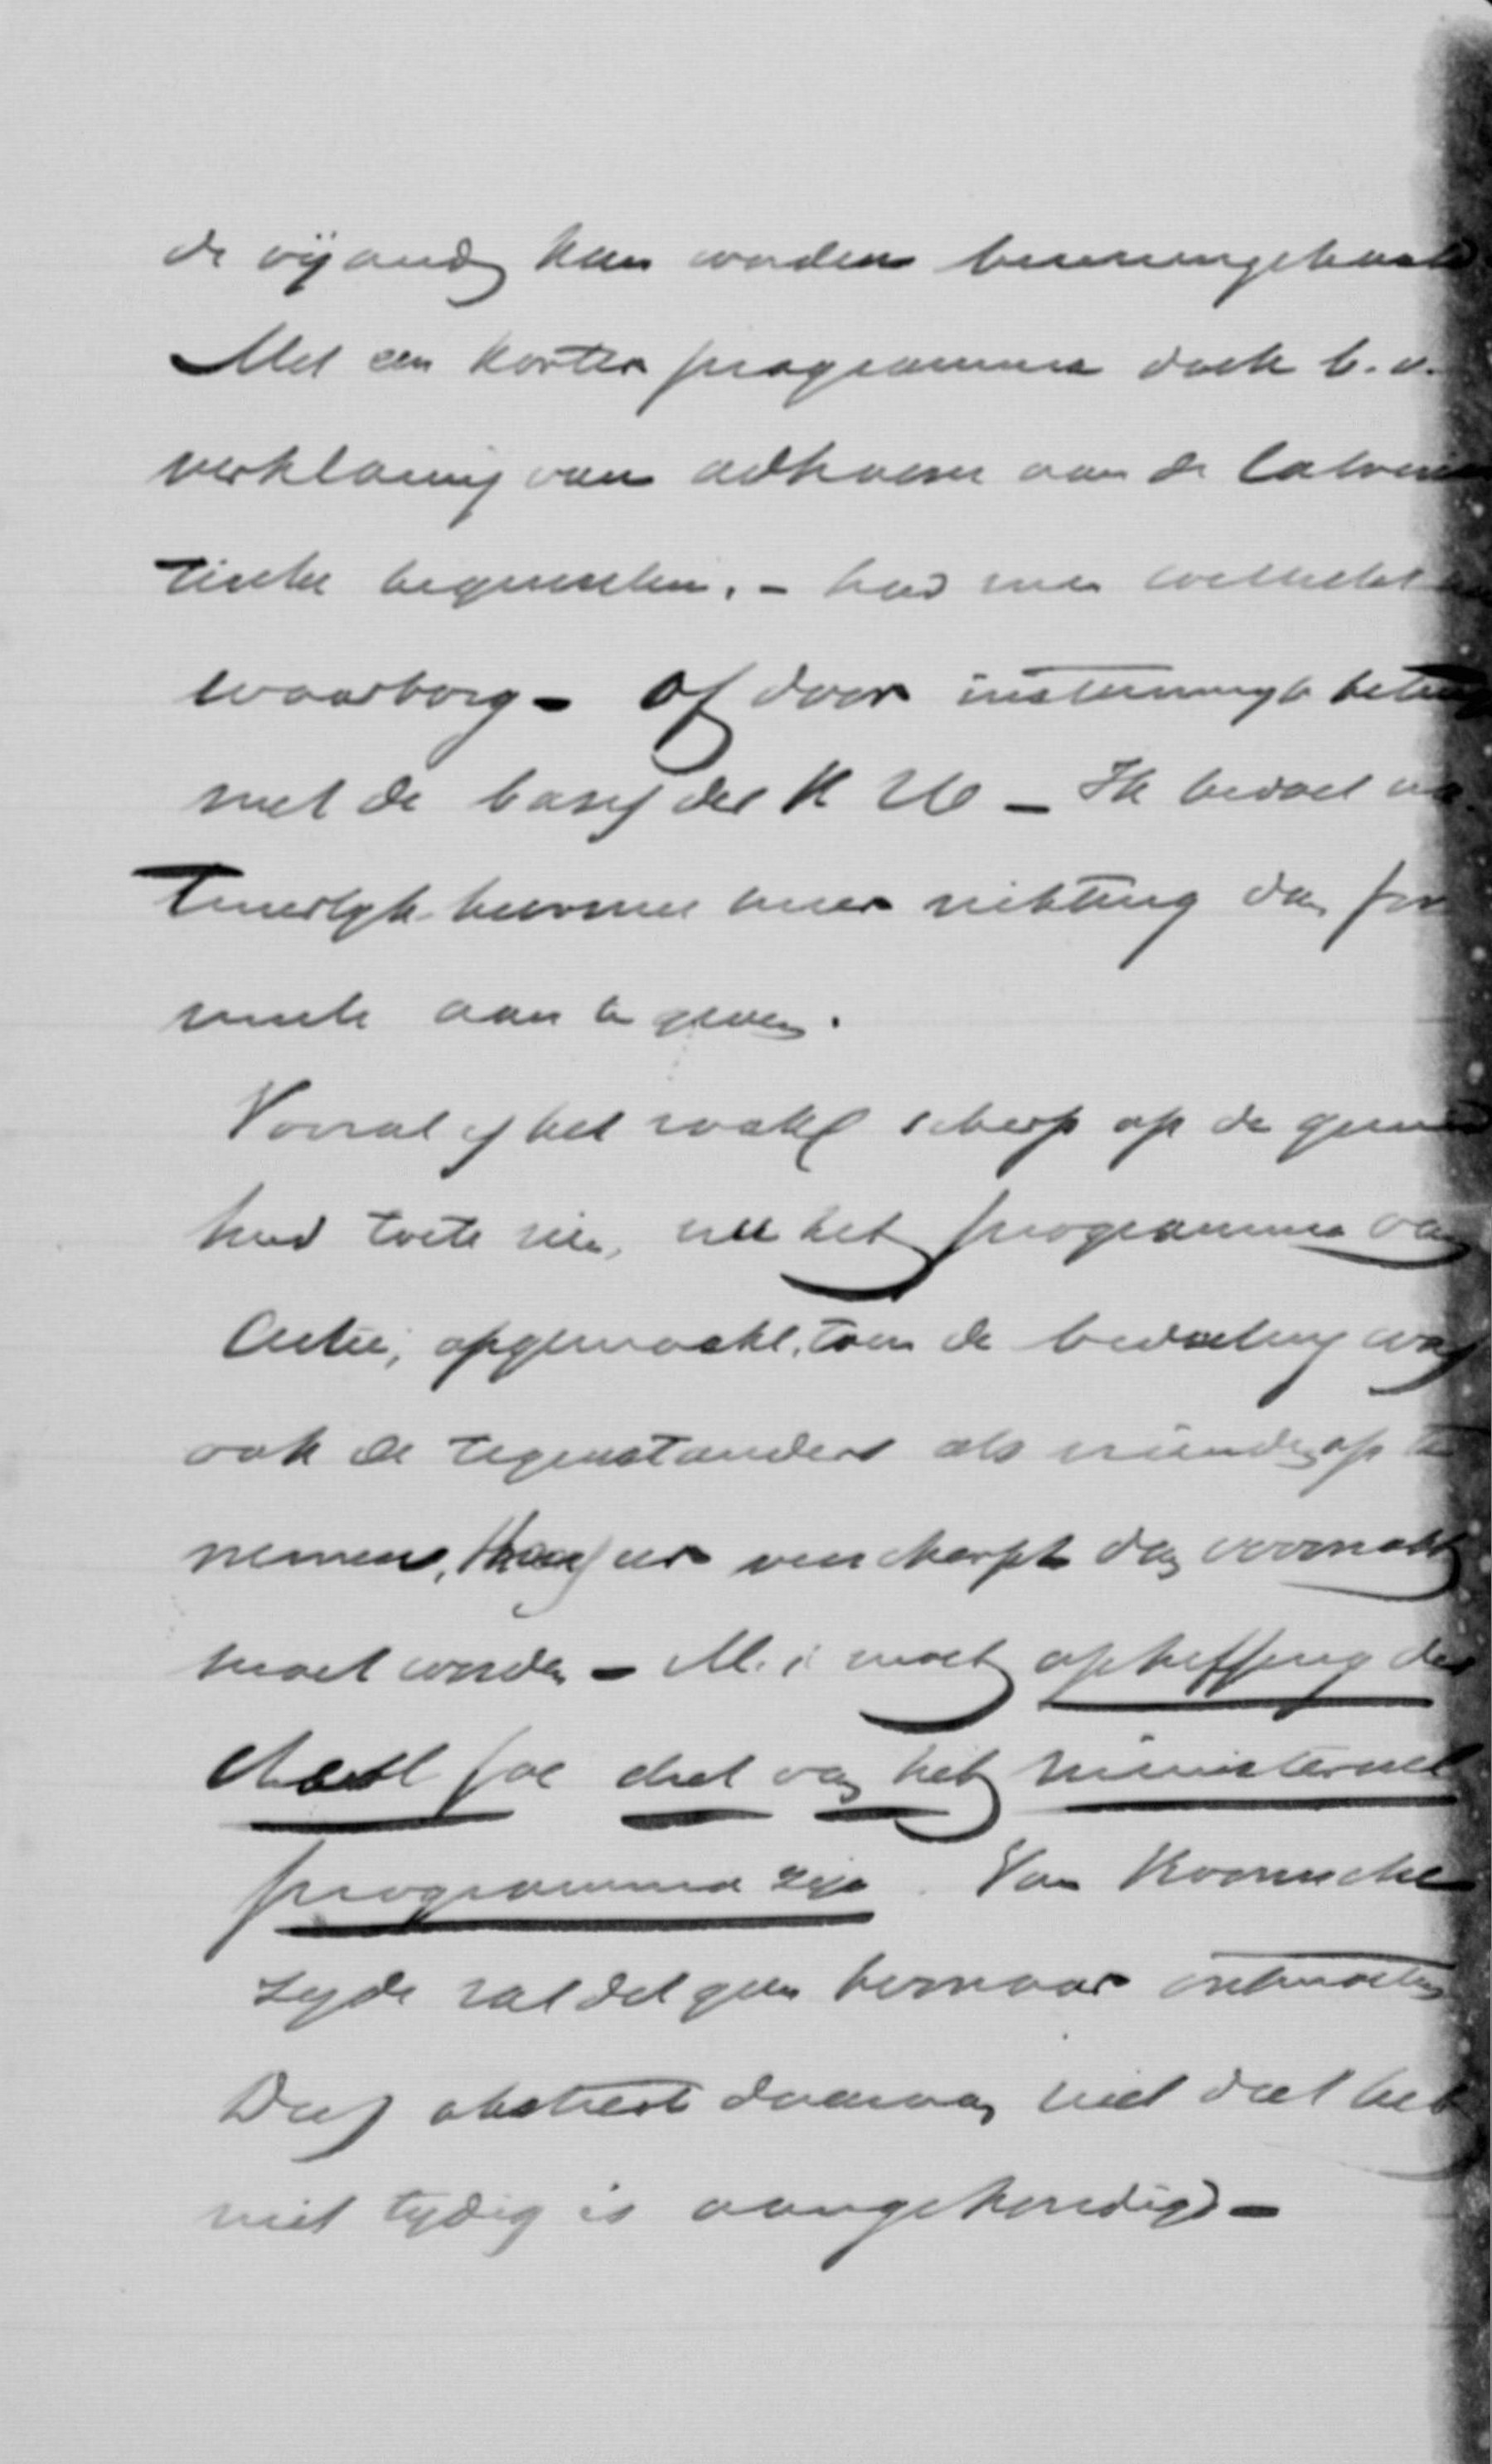 de vijand kan worden binnengehaald
Met een korter programma doch b.v.
verklaring van adhaesie aan de Calvinis
tische beginselen. - had men wellicht
waarborg - of door instemming te betuig
met de basis der V U - Ik bedoel na
tuurlijk hiermee meer richting dan for
mule aan te geven.
Vooral is het zaak scherp op de gezind
heid toe te zien, nu het programma van
Actie, opgemaakt, toen de bedoeling was
ook de tegenstanders als vrienden op te
nemen, thans eer verscherpt dan verzwakt
moet worden - M.i. moet opheffing der
deel van het ministerieel
programma zijn. Van Roomsche
zijde zal dit geen bezwaar ontmoeten
Dus obstreert daarvan niet dat het
niet tijdig is aangekondigd -